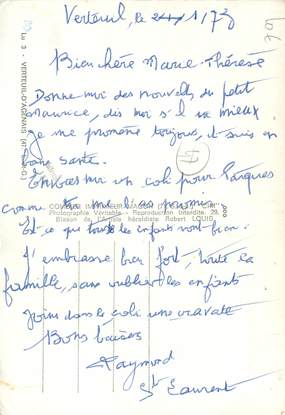 Verteuil, le 24/1/78
Bien chère Marie-Thérèse
Donne moi des nouvelles du petit
Maurice, dis moi s'il va mieux
je me promène toujours, et suis en
bonne santé.
Envois moi un coli pour Pâques
comme tu me l'as promis
Est-ce que toute les enfants vont bien.
J'embrasse bien fort, toute la
famille, sans oublier les enfants
Joins dans le coli une cravate
Bons baisers
Raymond
St Laurent
47
Lo 3 - VERTEUIL-D'AGENAIS (47-L.-&-G.)
Photographie Véritable - Reproduction Interdite
Blason de l'Artiste Héraldiste Robert LOUIS